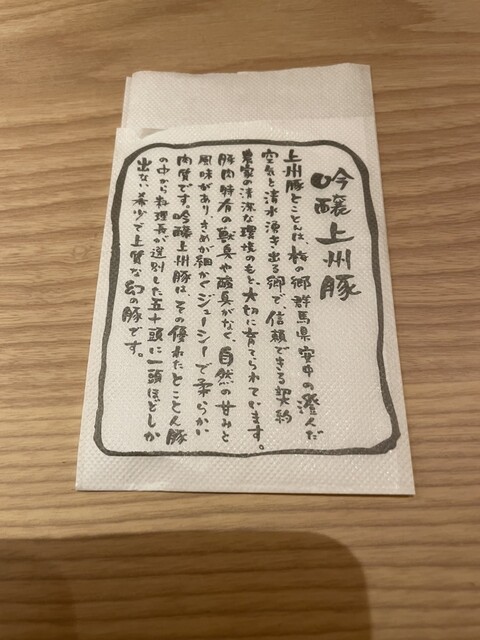 吟醸上州豚
上州豚とことんは、梅の郷群馬県安中の澄んだ
空気と清水湧き出る郷で信頼できる契約
農家の清潔な環境のもと、大切に育てられています。
豚肉特有の獣臭や酸臭がなく、自然の甘みと
風味があり、きめが細かくジューシーで柔らかい
肉質です。吟醸上州豚は、その優れたとことん豚
の中から料理長が選別した五十頭に一頭ほどしか
出ない希少で上質な幻の豚です。